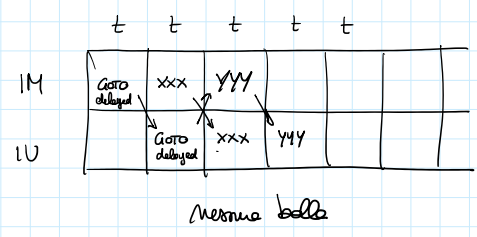 t t t t t
IM GOTO delayed XXX YYY
IU GOTO delayed XXX YYY
nessuna bolla